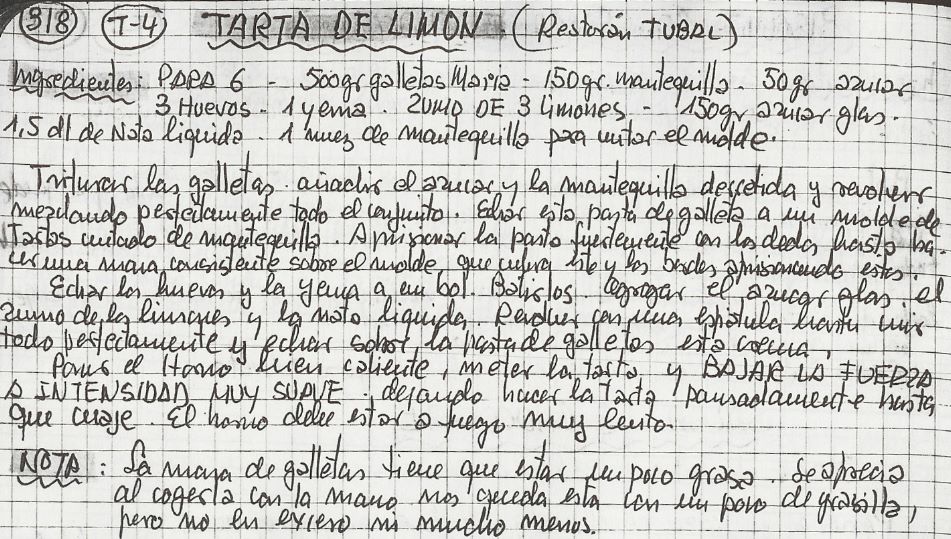 318 T-4 TARTA DE LIMON (Restorán TUBAL)
Ingredientes: PARA 6 - 500gr galletas Maria - 150gr. mantequilla - 50gr azucar
3 Huevos - 1 yema - ZUMO DE 3 limones - 150gr azucar glas.
1,5 dl de Nata liquida - 1 nuez de mantequilla para untar el molde.
Triturar las galletas. añadir el azucar y la mantequilla derretida y revolver
mezclando perfectamente todo el conjunto. Echar esta pasta de galleta a un molde de
tartas untado de mantequilla. Apisonar la pasta fuertemente con los dedos hasta ha-
cer una masa consistente sobre el molde, que cubra este y los bordes apisonando estos.
Echar los huevos y la yema a un bol. Batirlos. agregar el azucar glas. el
zumo de los limones y la nata liquida. Revolver con una espatula hasta unir
todo perfectamente y echar sobre la pasta de galletas esta crema.
Poner el Horno bien caliente, meter la tarta, y BAJAR LA FUERZA
A INTENSIDAD MUY SUAVE. dejando hacer la tarta pausadamente hasta
que cuaje. El horno debe estar a fuego muy lento.
NOTA: La masa de galletas tiene que estar un poco grasa. Se aprecia
al cogerla con la mano nos queda esta con un poco de grasilla,
pero no en exceso ni mucho menos.